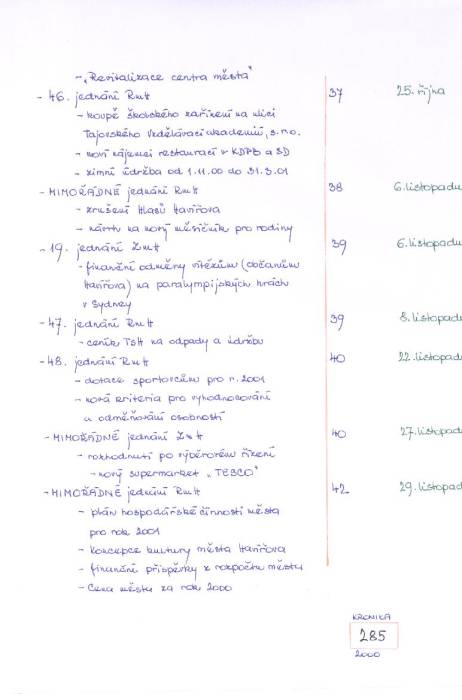 - „Revitalizace centra města"
- 46. jednání RmH 37 25. října
- koupě školského zařízení na ulici
Tajovského Vzdělávací akademií, s.r.o.
- noví nájemci restaurací v KDPB a SD
- zimní údržba od 1.11.00 do 31.3.01
- MIMOŘÁDNÉ jednání RmH 38 6. listopadu
- zrušení Hlasů Havířova
- návrh na nový měsíčník pro rodiny
- 19. jednání ZmH 39 6. listopadu
- finanční odměny vítězům (občanům
Havířova) na paralympijských hrách
v Sydney
- 47. jednání RmH 39 8. listopadu
- ceník TSH na odpady a údržbu
- 48. jednání RmH 40 22. listopadu
- dotace sportovcům pro r. 2001
- nová kriteria pro vyhodnocování
a odměňování osobností
- MIMOŘÁDNÉ jednání ZmH 40 27. listopadu
- rozhodnutí po výběrovém řízení
- nový supermarket „TESCO"
- MIMOŘÁDNÉ jednání RmH 42 29. listopadu
- plán hospodářské činnosti města
pro rok 2001
- koncepce kultury města Havířova
- finanční příspěvky z rozpočtu města
- Cena města za rok 2000
KRONIKA
285
2000